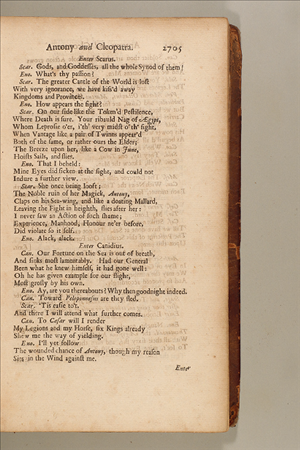 Antony and Cleopatra. 2705
Enter Scarus.
Scar. Gods, and Goddesses, all the whole Synod of them!
Eno. What's thy passion?
Scar. The greater Cantle of the World is lost
With very ignorance, we have kiss'd away
Kingdoms and Provinces.
Eno. How appears the fight?
Scar. On our side like the Token'd Pestilence,
Where Death is sure. Your ribauld Nag of Ægypt,
Whom Leprosie o'er, i'th' very midst o' th' fight,
When Vantage like a pair of Twinns appear'd
Both of the same, or rather ours the Elder;
The Breeze upon her, like a Cow in June,
Hoists Sails, and flies.
Eno. That I beheld:
Mine Eyes did sicken at the sight, and could not
Indure a further view.
Scar. She once being looft;
The Noble ruin of her Magick, Antony,
Claps on his Sea-wing, and like a doating Mallard,
Leaving the Fight in heighth, flies after her:
I never saw an Action of such shame;
Experience, Manhood, Honour ne'er before,
Did violate so it self.
Eno. Alack, alack.
Enter Canidius.
Can. Our Fortune on the Sea is out of breath,
And sinks most lamentably. Had our General
Been what he knew himself, it had gone well:
Oh he has given example for our flight,
Most grosly by his own.
Eno. Ay, are you thereabouts? Why then goodnight indeed.
Can. Toward Peloponnesus are they fled.
Scar. 'Tis easie to't,
And there I will attend what further comes.
Can. To Cæsar will I render
My Legions and my Horse, six Kings already
Shew me the way of yielding.
Eno. I'll yet follow
The wounded chance of Antony, though my reason
Sits in the Wind against me.
Enter